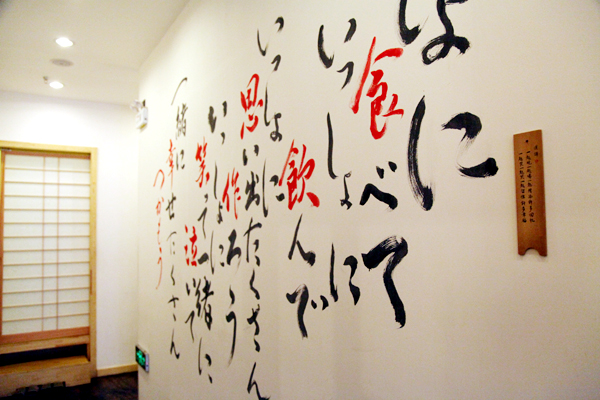 しょに
食べて
いっしょに
飲んで
いっしょに
思い出たくさん
作ろう
いっしょに
笑って一緒に
泣いて
一緒に幸せたくさん
つかもう